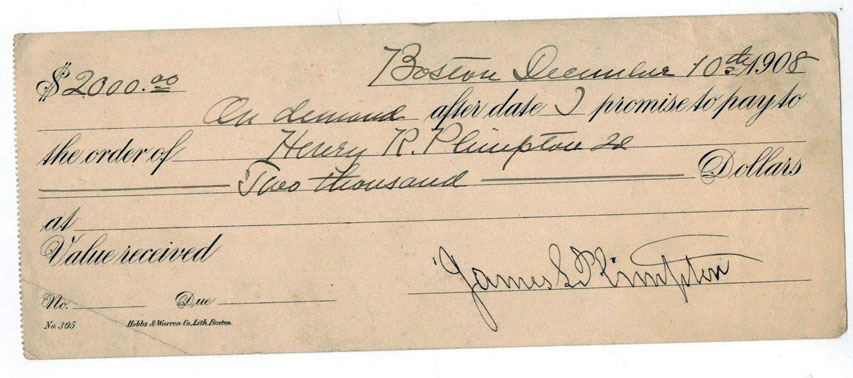 $2000.00 Boston December 10th 1908
On demand after date I promise to pay to
the order of Henry R. Plimpton 2d
Two thousand Dollars
at
Value received
James S. Plimpton
No. Due
No. 305 Hobbs & Warren Co., Lith. Boston.